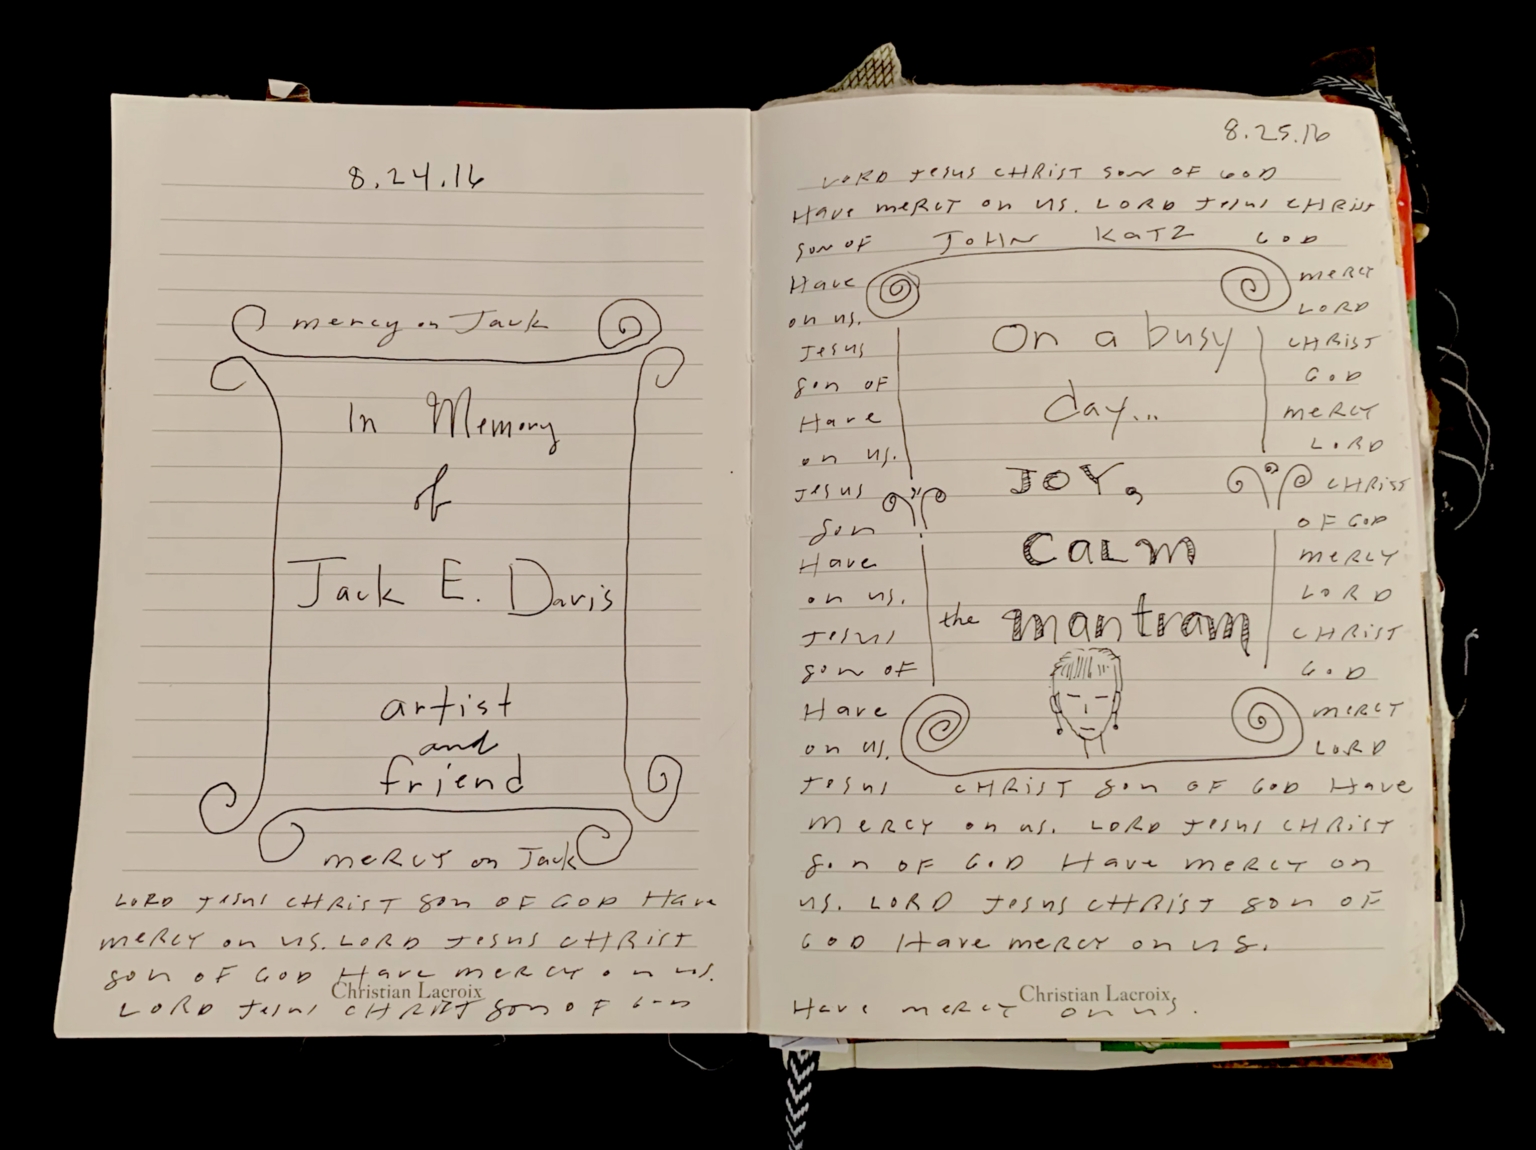 8.24.16
mercy on Jack
In Memory
of
Jack E. Davis
artist
and
friend
mercy on Jack
LORD Jesus CHRIST son OF GOD Have
mercy on us. LORD Jesus CHRIST
son OF GOD Have mercy on us.
Christian Lacroix
LORD Jesus CHRIST son OF GOD
8.25.16
LORD Jesus CHRIST son OF GOD
Have mercy on us. LORD Jesus CHRIST
son OF JOHN KATZ GOD
Have mercy
on us. LORD
Jesus On a busy CHRIST
son OF GOD
Have day... mercy
on us. LORD
Jesus JOY, CHRIST
son OF GOD
Have CALM mercy
on us. LORD
Jesus the mantram CHRIST
son OF GOD
Have mercy
on us. LORD
Jesus CHRIST son OF GOD Have
mercy on us. LORD Jesus CHRIST
son OF GOD Have mercy on
us. LORD Jesus CHRIST son OF
GOD Have mercy on us.
Christian Lacroix
Have mercy on us.